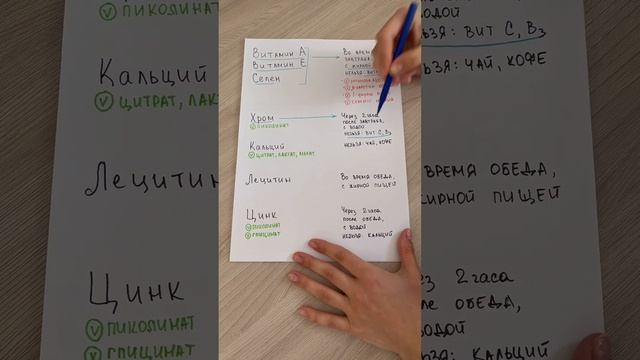 Витамин А
Витамин Е
Селен
Во время
завтрака
с жирной
нельзя:
Хром
пиколинат
Через 2 часа
после завтрака,
с водой
нельзя: вит С, В3
Кальций
цитрат, лактат, малат
нельзя: чай, кофе
Лецитин
Во время обеда,
с жирной пищей
Цинк
пиколинат
глицинат
Через 2 часа
после обеда,
с водой
нельзя: кальций
пиколинат
Кальций
цитрат, лак
Лецитин
Цинк
пиколинат
глицинат
водой
ьзя: вит С, В3
нельзя: чай, кофе
время обеда,
жирной пищей
рез 2 часа
ле обеда,
водой
льзя: кальций